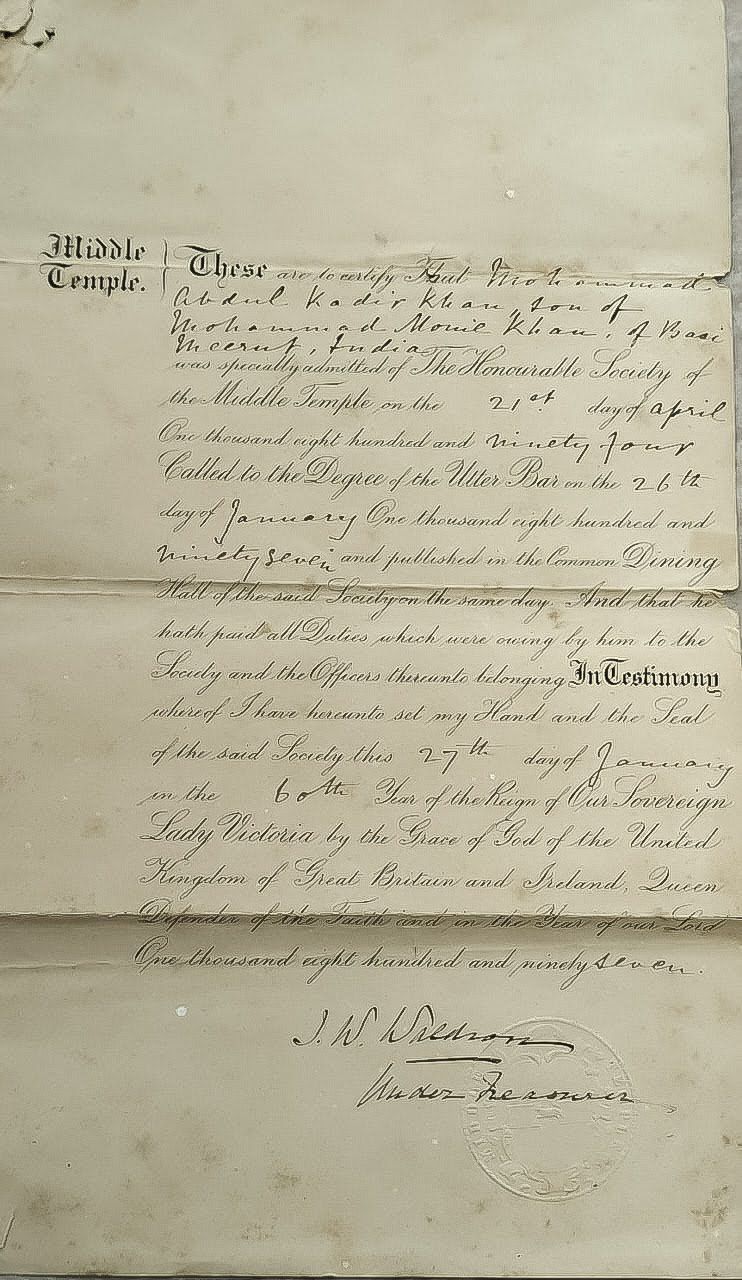 Middle
Temple.
These are to certify That Mohammad
Abdul Kadir Khan, son of
Mohammad Khan, of Basi
Meerut, India
was specially admitted of The Honourable Society of
the Middle Temple on the 21st day of April
One thousand eight hundred and ninety four
Called to the Degree of the Utter Bar on the 26th
day of January One thousand eight hundred and
ninety seven and published in the Common Dining
Hall of the said Society on the same day And that he
hath paid all Duties which were owing by him to the
Society and the Officers thereunto belonging In Testimony
whereof I have hereunto set my Hand and the Seal
of the said Society this 27th day of January
in the 60th Year of the Reign of Our Sovereign
Lady Victoria by the Grace of God of the United
Kingdom of Great Britain and Ireland, Queen
Defender of the Faith and in the Year of our Lord
One thousand eight hundred and ninety seven.
J. W. Waldron
Under Treasurer